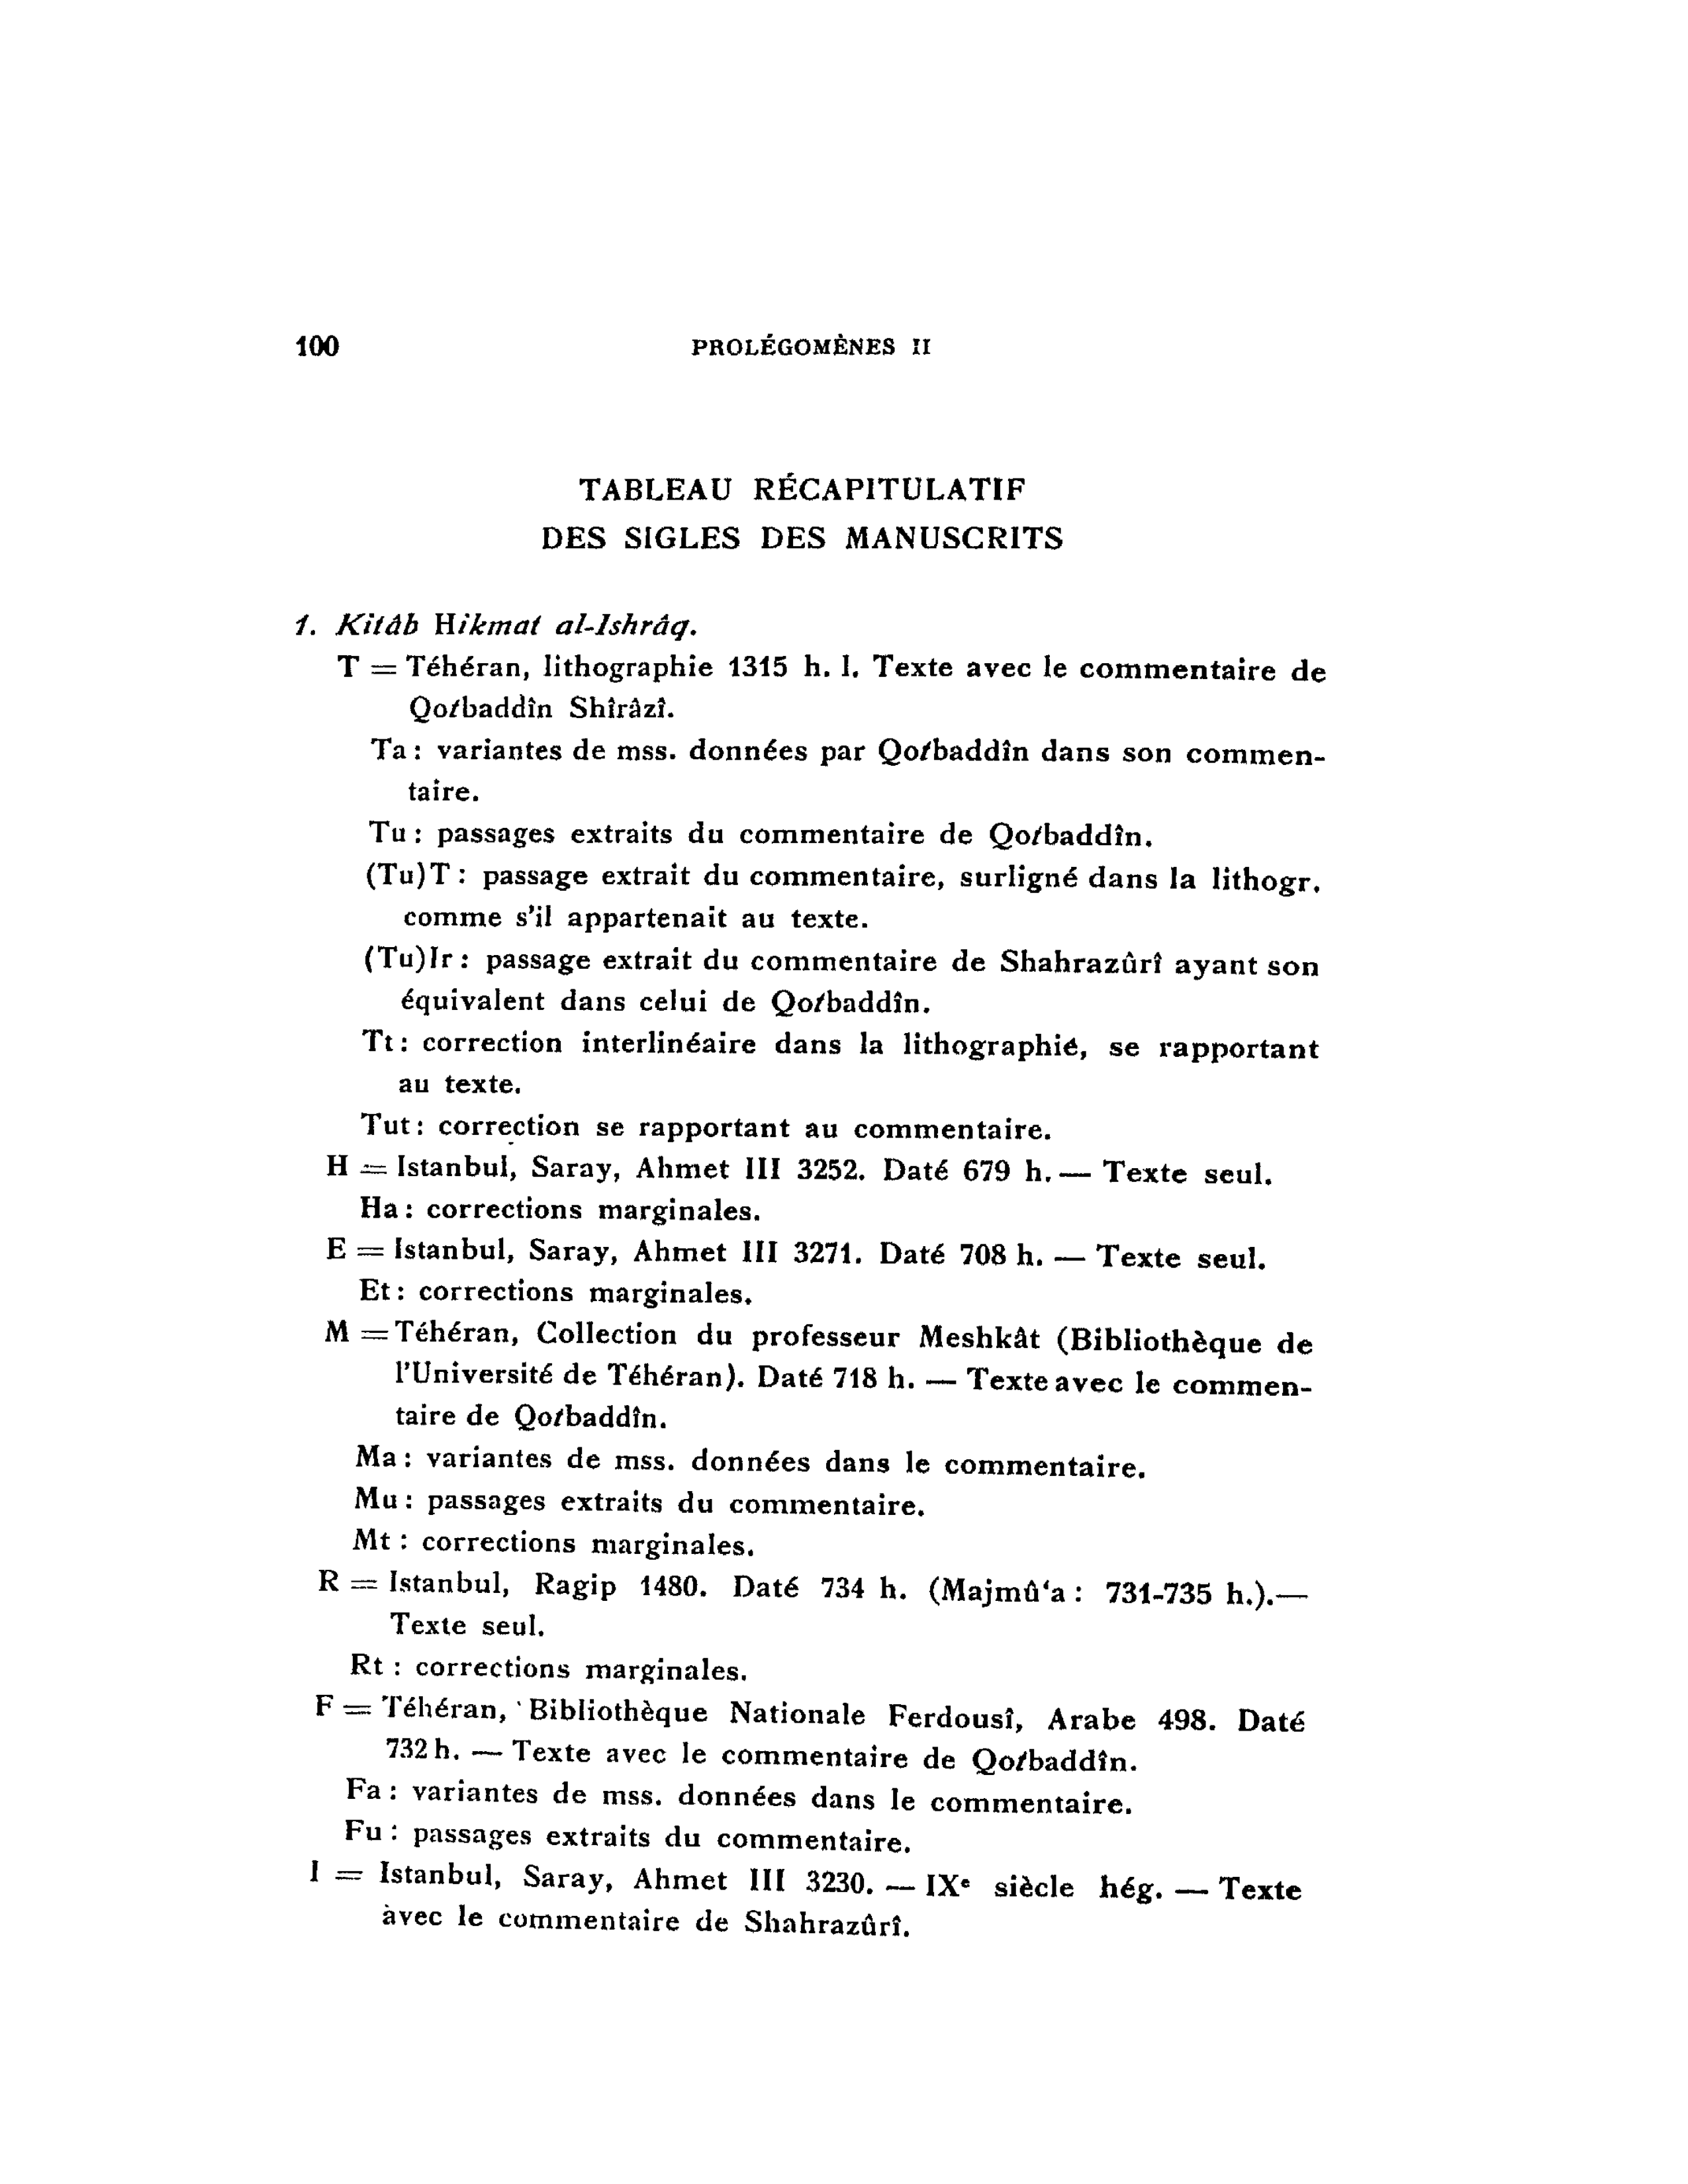 100
PROLÉGOMÈNES II
TABLEAU RÉCAPITULATIF
DES SIGLES DES MANUSCRITS
1. Kitâb Hikmat al-Ishrâq.
T = Téhéran, lithographie 1315 h. l. Texte avec le commentaire de
Qotbaddîn Shîrâzî.
Ta : variantes de mss. données par Qotbaddîn dans son commen-
taire.
Tu : passages extraits du commentaire de Qotbaddîn.
(Tu)T : passage extrait du commentaire, surligné dans la lithogr.
comme s'il appartenait au texte.
(Tu)Ir : passage extrait du commentaire de Shahrazûrî ayant son
équivalent dans celui de Qotbaddîn.
Tt : correction interlinéaire dans la lithographie, se rapportant
au texte.
Tut : correction se rapportant au commentaire.
H = Istanbul, Saray, Ahmet III 3252. Daté 679 h. — Texte seul.
Ha : corrections marginales.
E = Istanbul, Saray, Ahmet III 3271. Daté 708 h. — Texte seul.
Et : corrections marginales.
M = Téhéran, Collection du professeur Meshkât (Bibliothèque de
l'Université de Téhéran). Daté 718 h. — Texte avec le commen-
taire de Qotbaddîn.
Ma : variantes de mss. données dans le commentaire.
Mu : passages extraits du commentaire.
Mt : corrections marginales.
R = Istanbul, Ragip 1480. Daté 734 h. (Majmû‘a : 731-735 h.).—
Texte seul.
Rt : corrections marginales.
F = Téhéran, Bibliothèque Nationale Ferdousî, Arabe 498. Daté
732 h. — Texte avec le commentaire de Qotbaddîn.
Fa : variantes de mss. données dans le commentaire.
Fu : passages extraits du commentaire.
I = Istanbul, Saray, Ahmet III 3230. — IXe siècle hég. — Texte
avec le commentaire de Shahrazûrî.